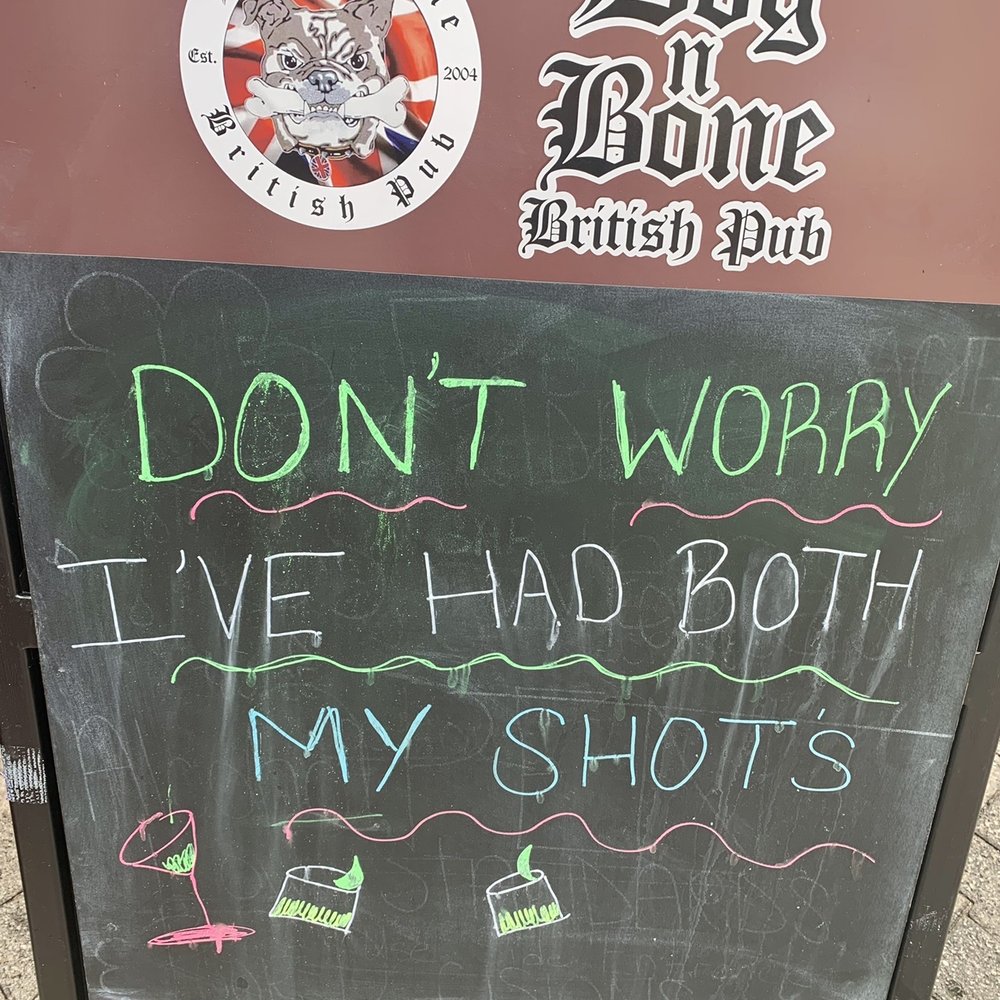 Est.
2004
British Pub
n
Bone
British Pub
DON'T WORRY
I'VE HAD BOTH
MY SHOT'S